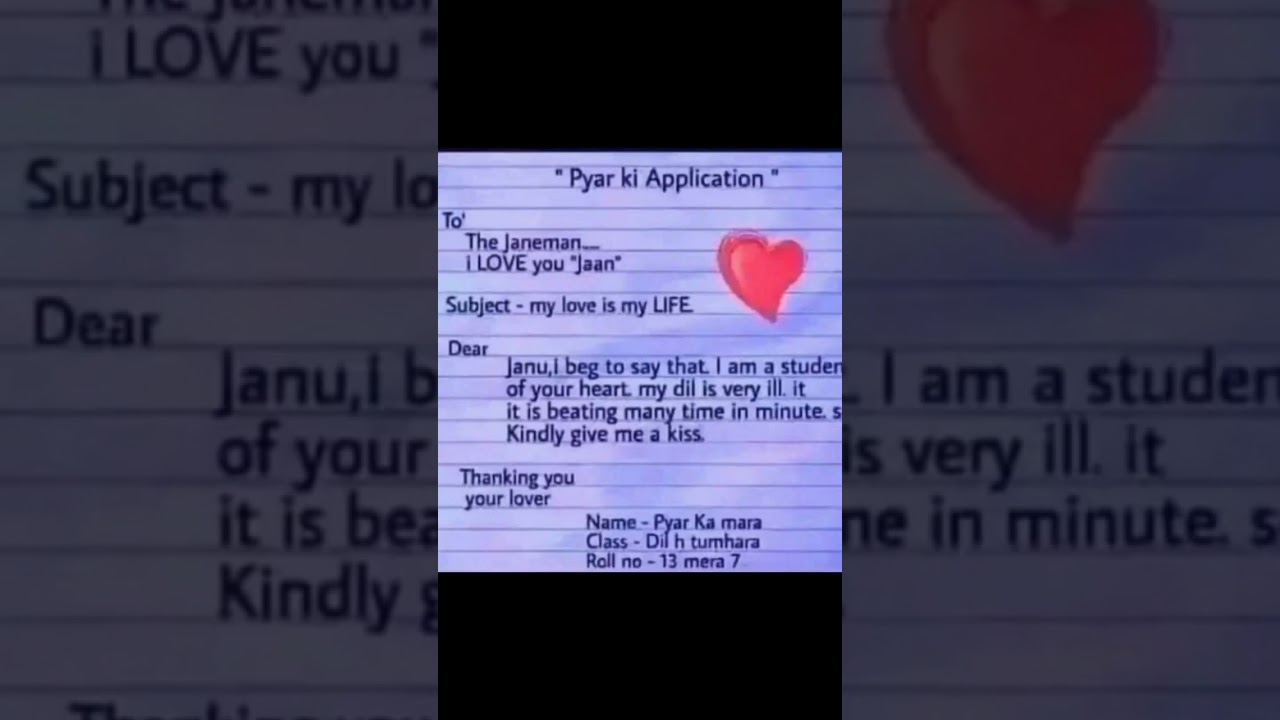 " Pyar ki Application "
To'
The Janeman....
i LOVE you "Jaan"
Subject - my love is my LIFE.
Dear
Janu,i beg to say that. I am a studen
of your heart. my dil is very ill. it
it is beating many time in minute. s
Kindly give me a kiss.
Thanking you
your lover
Name - Pyar Ka mara
Class - Dil h tumhara
Roll no - 13 mera 7